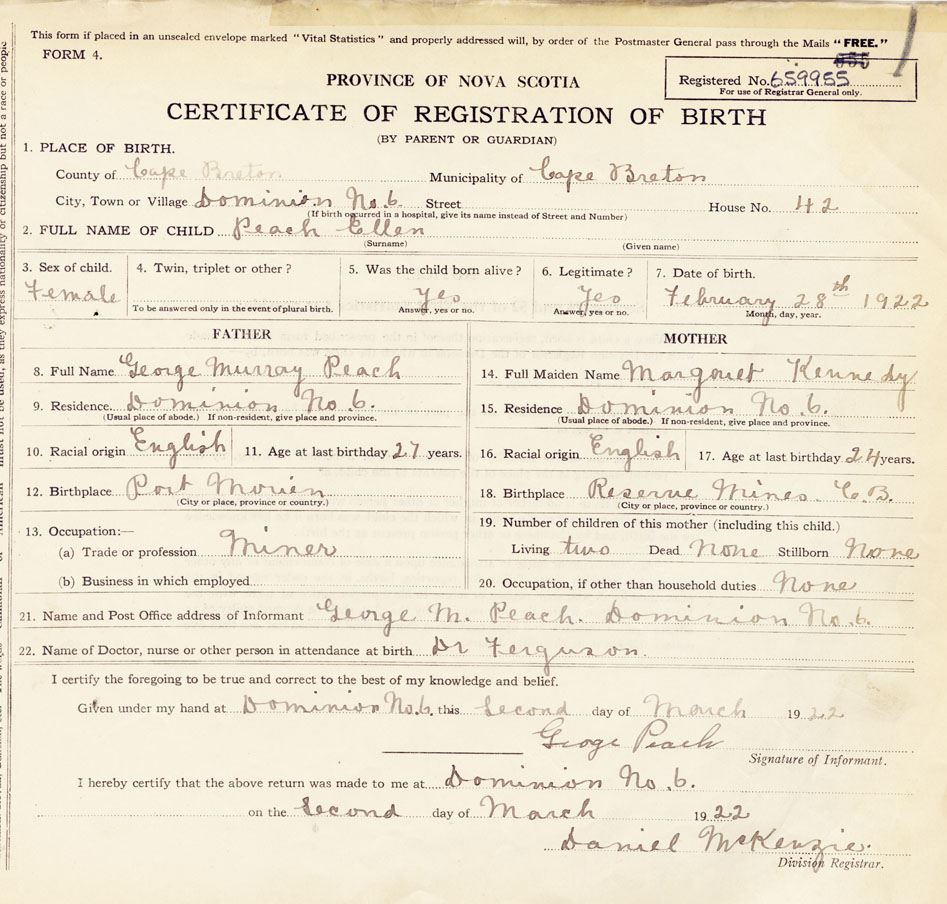 This form if placed in an unsealed envelope marked "Vital Statistics" and properly addressed will, by order of the Postmaster General pass through the Mails "FREE."
FORM 4.
PROVINCE OF NOVA SCOTIA
Registered No. 659955
For use of Registrar General only.
CERTIFICATE OF REGISTRATION OF BIRTH
(BY PARENT OR GUARDIAN)
1. PLACE OF BIRTH.
County of Cape Breton Municipality of Cape Breton
City, Town or Village Dominion No. 6 Street House No. 42
(If birth occurred in a hospital, give its name instead of Street and Number)
2. FULL NAME OF CHILD Peach Ellen
(Surname) (Given name)
3. Sex of child. 4. Twin, triplet or other? 5. Was the child born alive? 6. Legitimate? 7. Date of birth.
Female Yes Yes February 28th 1922
To be answered only in the event of plural birth. Answer, yes or no. Answer, yes or no. Month, day, year.
FATHER MOTHER
8. Full Name George Murray Peach 14. Full Maiden Name Margaret Kennedy
9. Residence. Dominion No. 6. 15. Residence Dominion No. 6.
(Usual place of abode.) If non-resident, give place and province. (Usual place of abode.) If non-resident, give place and province.
10. Racial origin English 11. Age at last birthday 27 years. 16. Racial origin English 17. Age at last birthday 24 years.
12. Birthplace Port Morien 18. Birthplace Reserve Mines. C.B.
(City or place, province or country.) (City or place, province or country.)
13. Occupation:— 19. Number of children of this mother (including this child.)
(a) Trade or profession Miner Living two Dead None Stillborn None
(b) Business in which employed 20. Occupation, if other than household duties None
21. Name and Post Office address of Informant George M. Peach. Dominion No. 6.
22. Name of Doctor, nurse or other person in attendance at birth Dr Ferguson.
I certify the foregoing to be true and correct to the best of my knowledge and belief.
Given under my hand at Dominion No. 6. this Second day of March 1922
George Peach
Signature of Informant.
I hereby certify that the above return was made to me at Dominion No. 6.
on the Second day of March 1922
Daniel McKenzie.
Division Registrar.